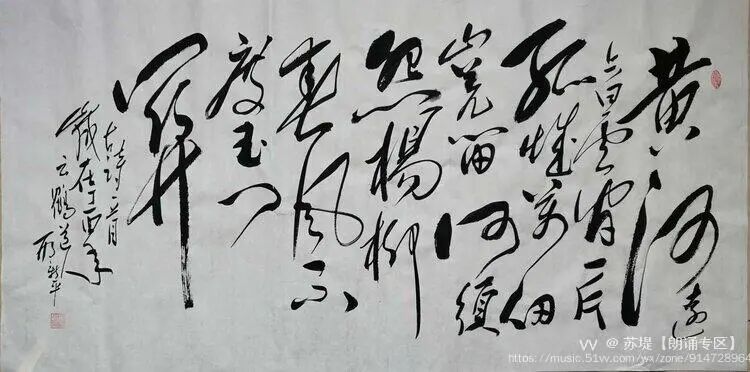 黄河遠
上白雲间一片
孤城萬仞
山羌笛何須
怨楊柳
春風不
度玉门
關
古詩一首
歲在丁酉年
云鶴道人
VV @ 苏堤【朗诵专区】
https://music.51vv.com/wx/zone/914728964